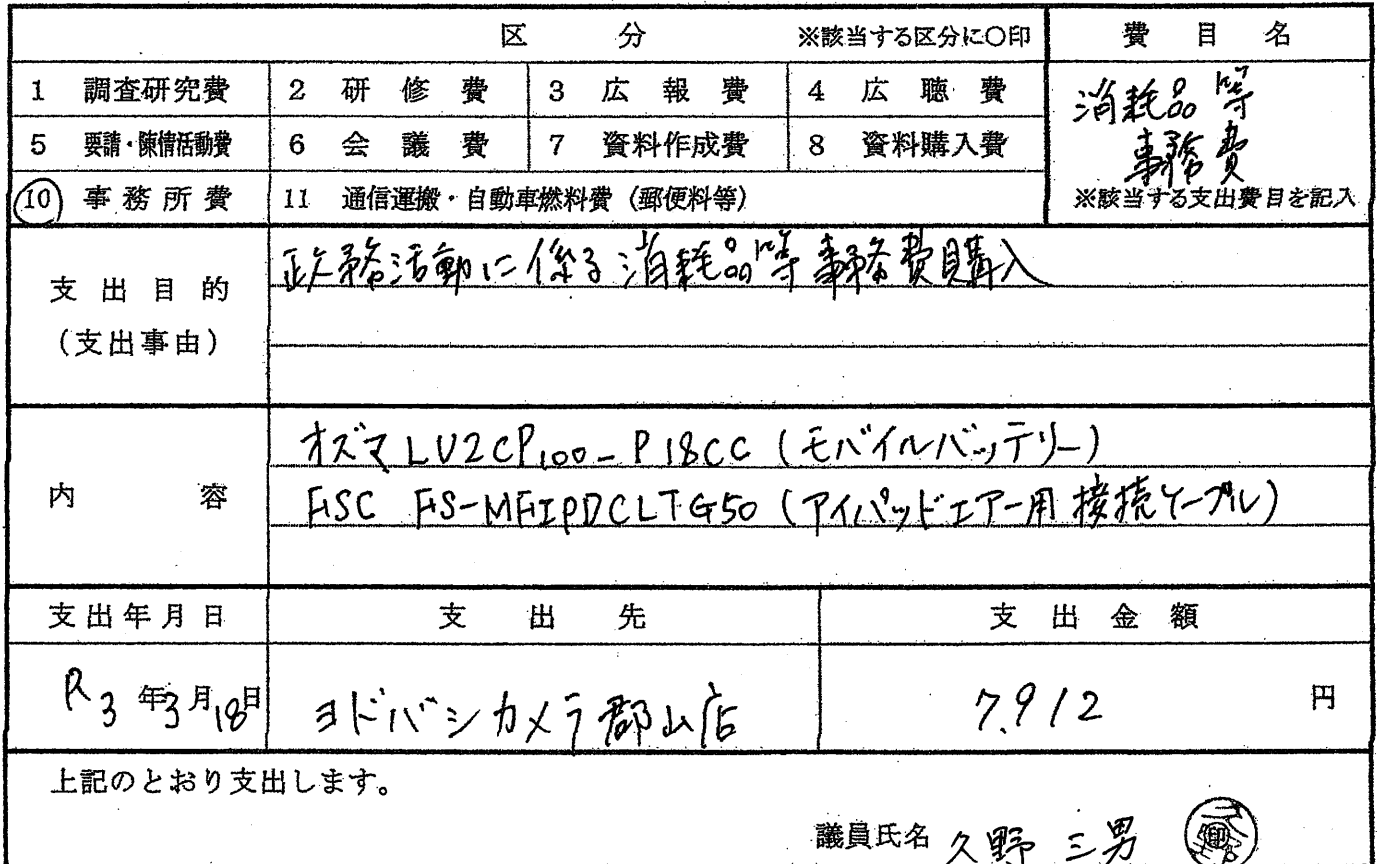 区 分 ※該当する区分に○印 費目名
1 調査研究費 2 研修費 3 広報費 4 広聴費
消耗品等
5 要請・陳情活動費 6 会議費 7 資料作成費 8 資料購入費
事務費
10 事務所費 11 通信運搬・自動車燃料費(郵便料等) ※該当する支出費目を記入
支出目的
(支出事由)
政務活動に係る消耗品等事務費購入
内容
オズマLU2CP100-P18CC(モバイルバッテリー)
FSC FS-MFIPDCLTG50(アイパッドエアー用接続ケーブル)
支出年月日 支出先 支出金額
R3年3月18日 ヨドバシカメラ郡山店 7,912円
上記のとおり支出します。
議員氏名 久野 三男